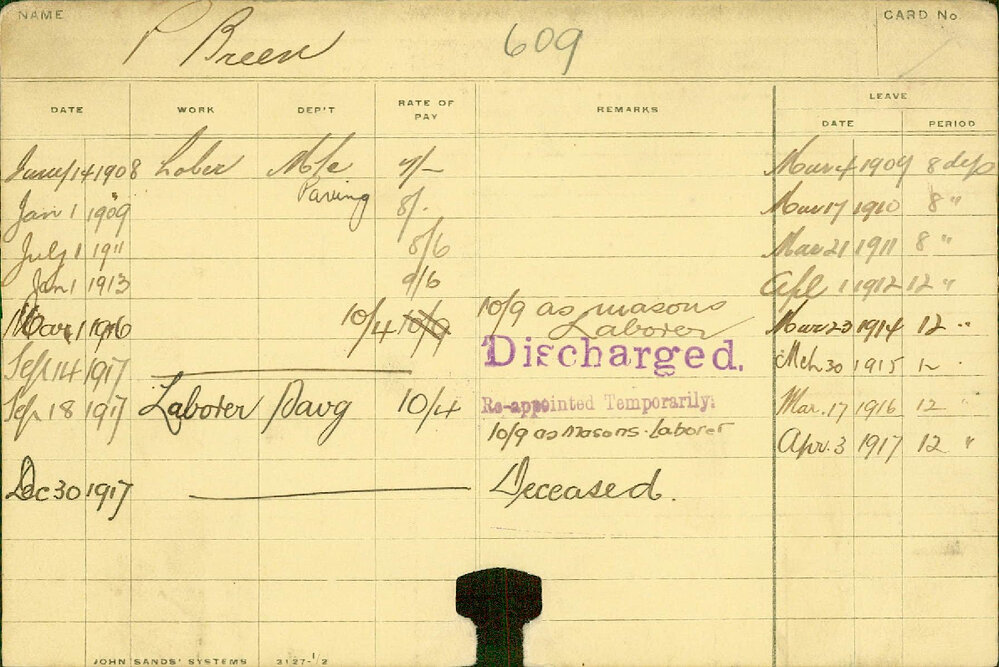 NAME P Breen 609 CARD No.
DATE WORK DEP'T RATE OF PAY REMARKS LEAVE
DATE PERIOD
14 1908 Laber M/c 7/- Mar 4 1909 8 days
Paving
Jan 1 1909 8/- Mar 17 1910 8 "
July 1 1911 8/6 Mar 21 1911 8 "
Jan 1 1913 9/6 Apl 1 1912 12 "
Mar 1 1916 10/4 10/9 10/9 as masons Mar 23 1914 12 "
Laborer
Sept 14 1917 Discharged. Mch 30 1915 12
Sep 18 1917 Laborer Pavg 10/4 Re-appointed Temporarily. Mar. 17 1916 12 "
10/9 as Masons Laborer Apr. 3 1917 12 "
Dec 30 1917 Deceased.
JOHN SANDS' SYSTEMS 3127-1/2